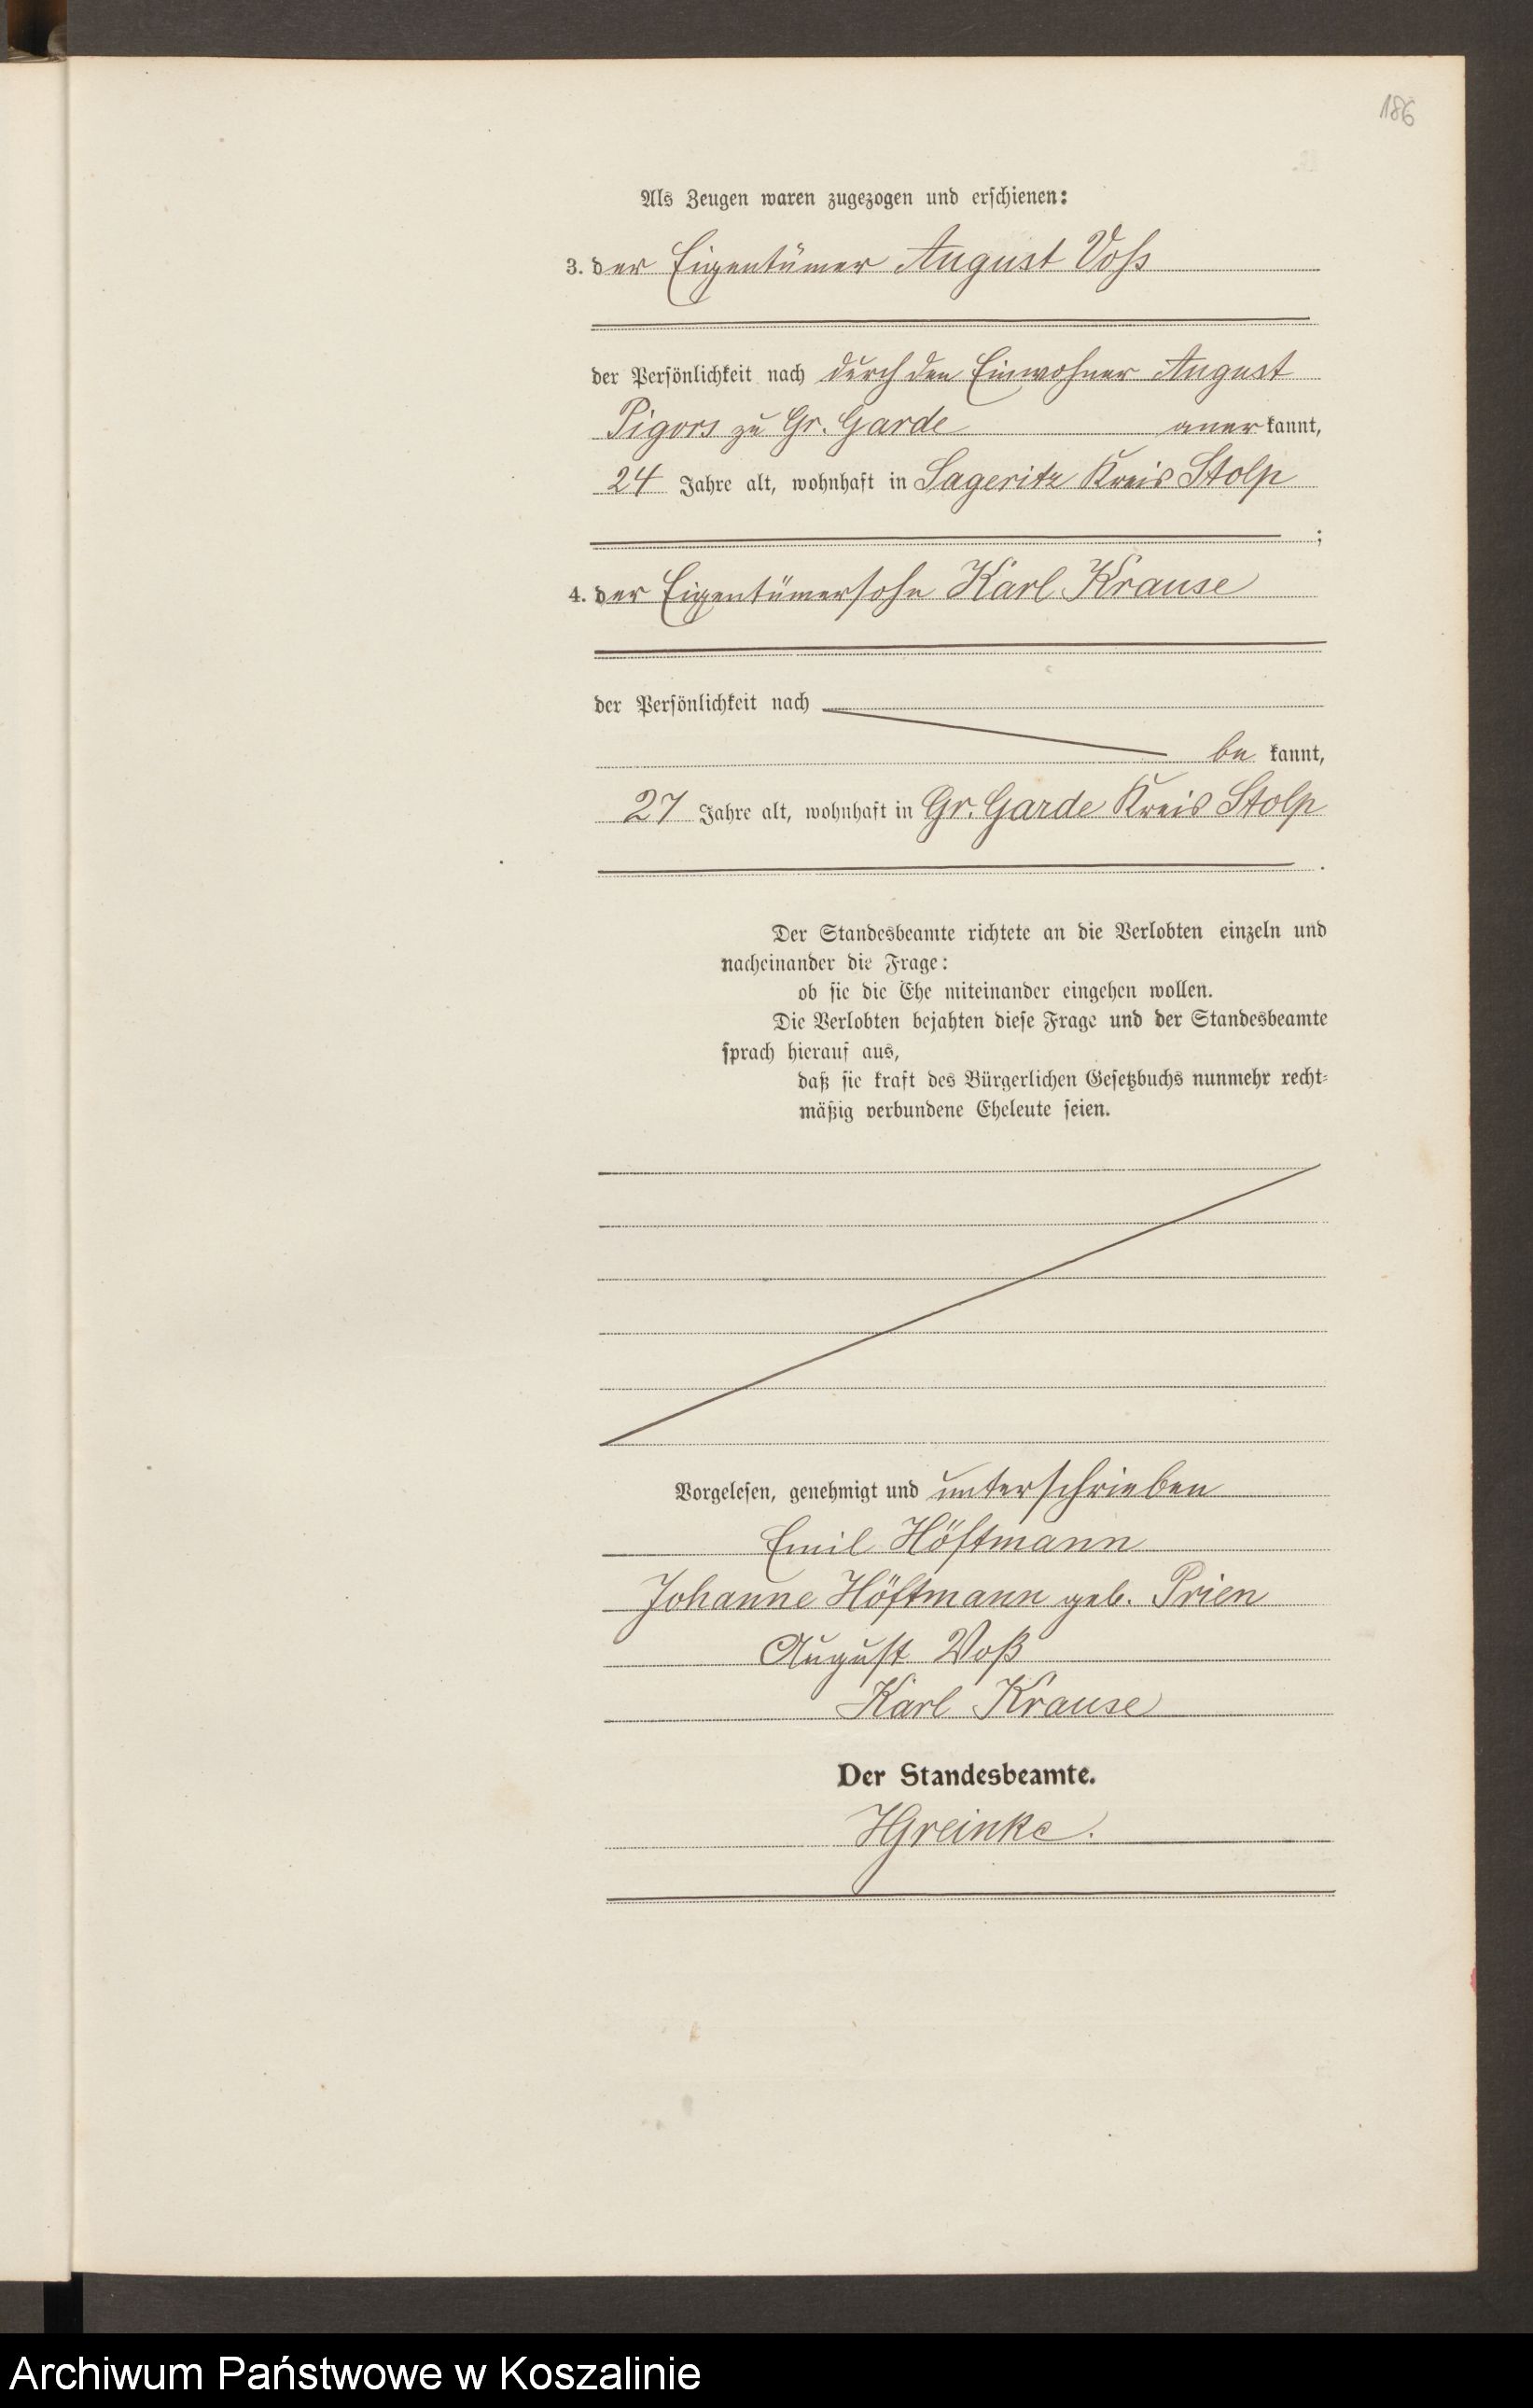 186
Als Zeugen waren zugezogen und erschienen:
3. der Eigentümer August Voss
der Persönlichkeit nach durch den Einwohner August
Pigors zu Gr. Garde anerkannt,
24 Jahre alt, wohnhaft in Sageritz Kreis Stolp
;
4. der Eigentümersohn Karl Krause
der Persönlichkeit nach
be kannt,
27 Jahre alt, wohnhaft in Gr. Garde Kreis Stolp
.
Der Standesbeamte richtete an die Verlobten einzeln und
nacheinander die Frage:
ob sie die Ehe miteinander eingehen wollen.
Die Verlobten bejahten diese Frage und der Standesbeamte
sprach hierauf aus,
daß sie kraft des Bürgerlichen Gesetzbuchs nunmehr recht-
mäßig verbundene Eheleute seien.
Vorgelesen, genehmigt und unterschrieben
Emil Höftmann
Johanne Höftmann geb. Prien
August Voß
Karl Krause
Der Standesbeamte.
HGreinke.
Archiwum Państwowe w Koszalinie